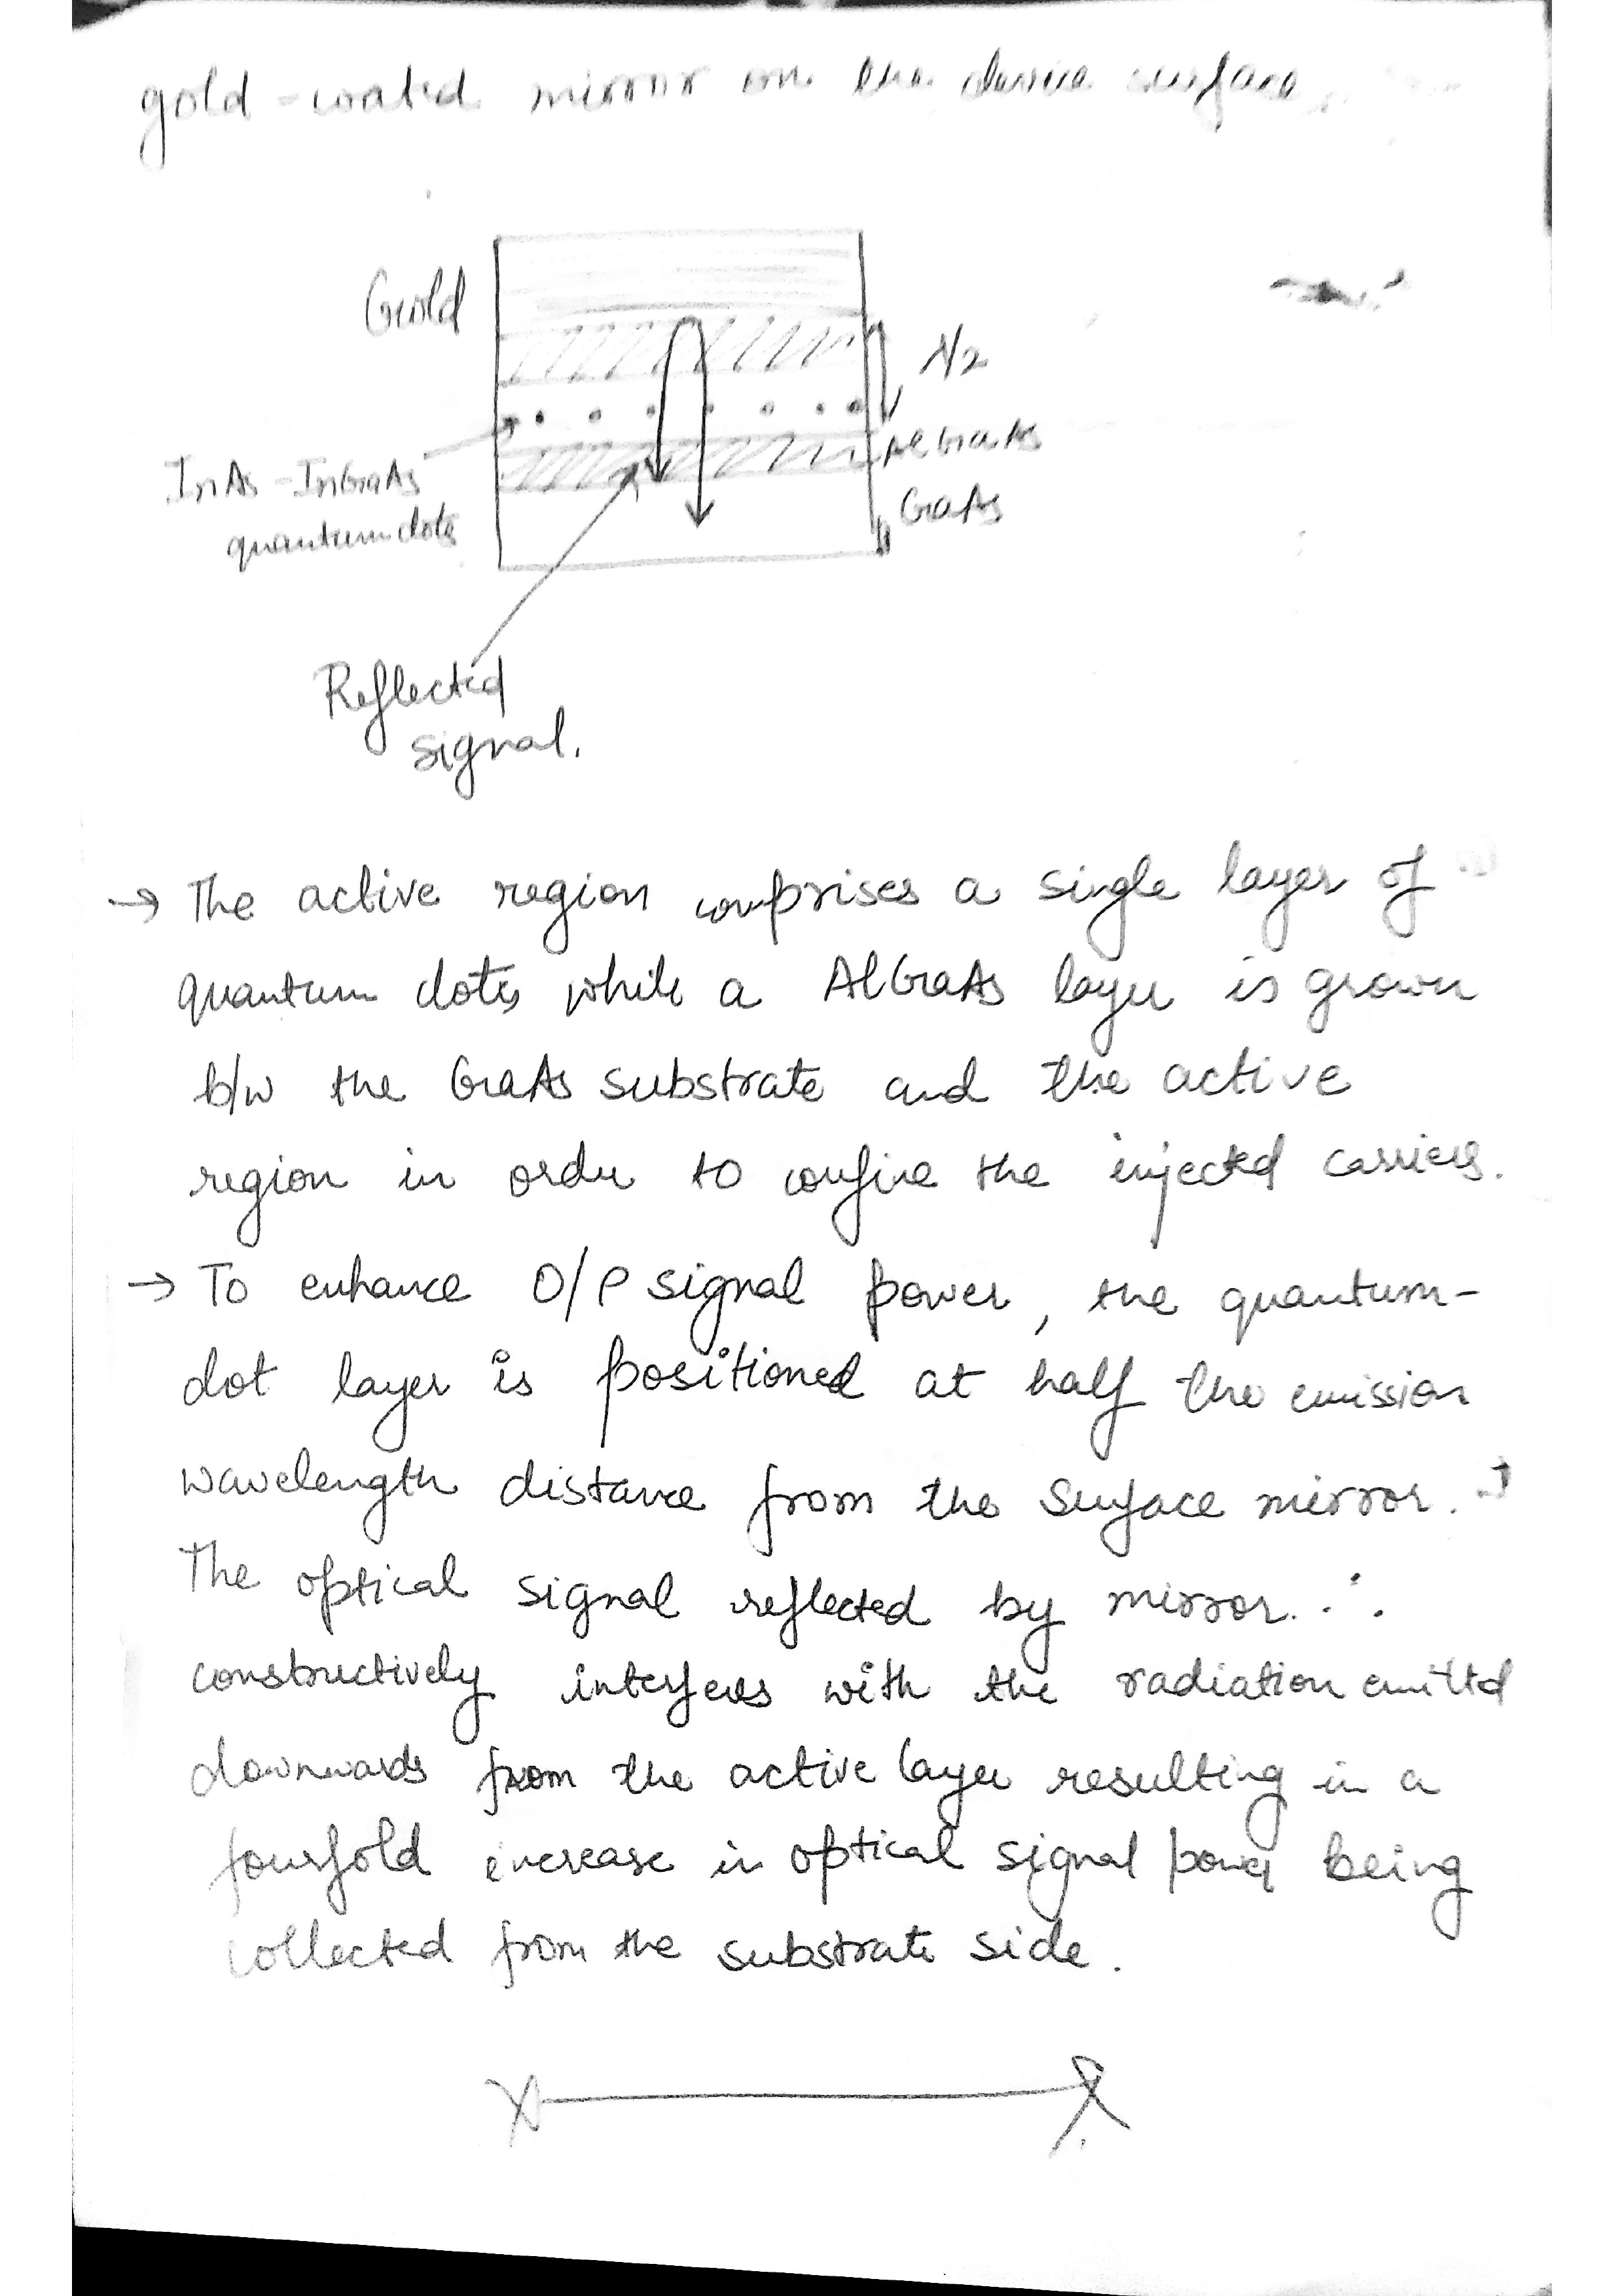 gold-coated mirror on the device surface
Gold
λ/2
AlGaAs
InAs-InGaAs
quantum dots
GaAs
Reflected
signal.
→ The active region comprises a single layer of
quantum dots while a AlGaAs layer is grown
b/w the GaAs substrate and the active
region in order to confine the injected carriers.
→ To enhance O/P signal power, the quantum-
dot layer is positioned at half the emission
wavelength distance from the surface mirror. →
The optical signal reflected by mirror ∴
constructively interferes with the radiation emitted
downwards from the active layer resulting in a
fourfold increase in optical signal power being
collected from the substrate side.